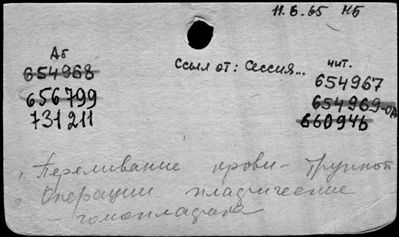 11.6.65 МБ
Аб
654968
656799
731211
Ссыл от: Сессия...
чит.
654967
654969-од
660946
1. Переливание крови - трупной
Операции пластические
- гомопластика